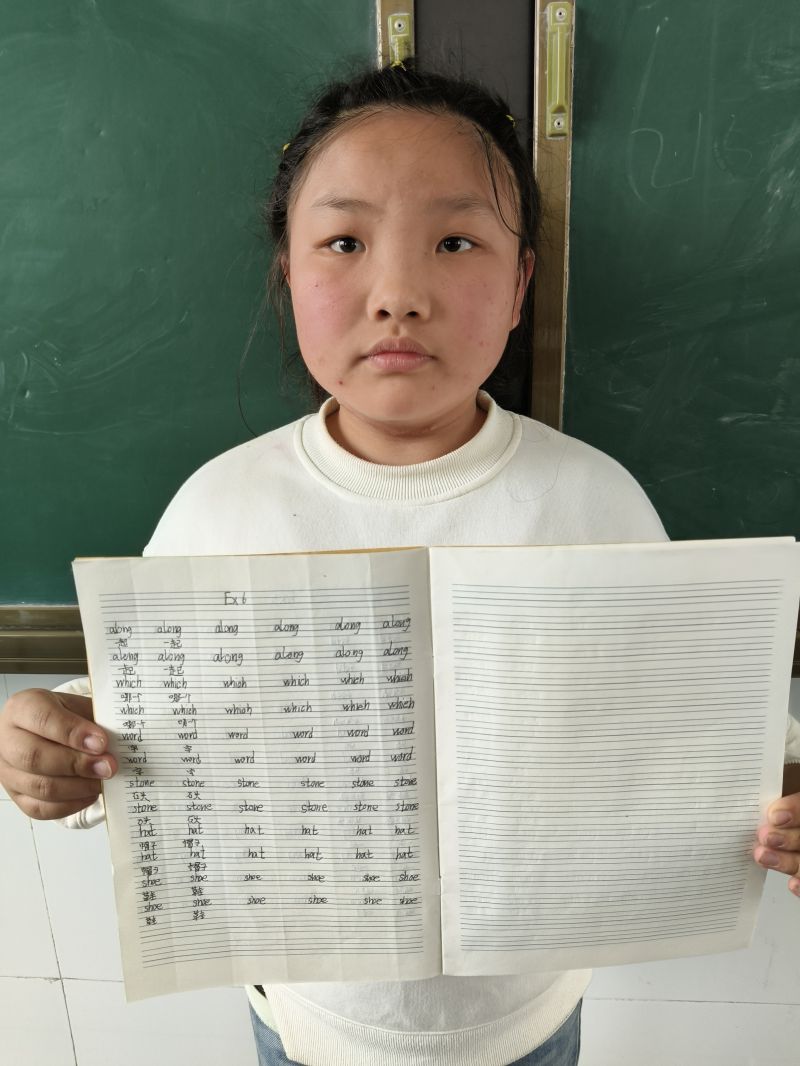 Ex 6
along along along along along along
一起 一起
along along along along along along
一起 一起
which which which which which which
哪一个 哪一个
which which which which which which
哪一个 哪一个
word word word word word word
字 字
word word word word word word
字 字
stone stone stone stone stone stone
石头 石头
stone stone stone stone stone stone
石头 石头
hat hat hat hat hat hat
帽子 帽子
hat hat hat hat hat hat
帽子 帽子
shoe shoe shoe shoe shoe shoe
鞋 鞋
shoe shoe shoe shoe shoe shoe
鞋 鞋